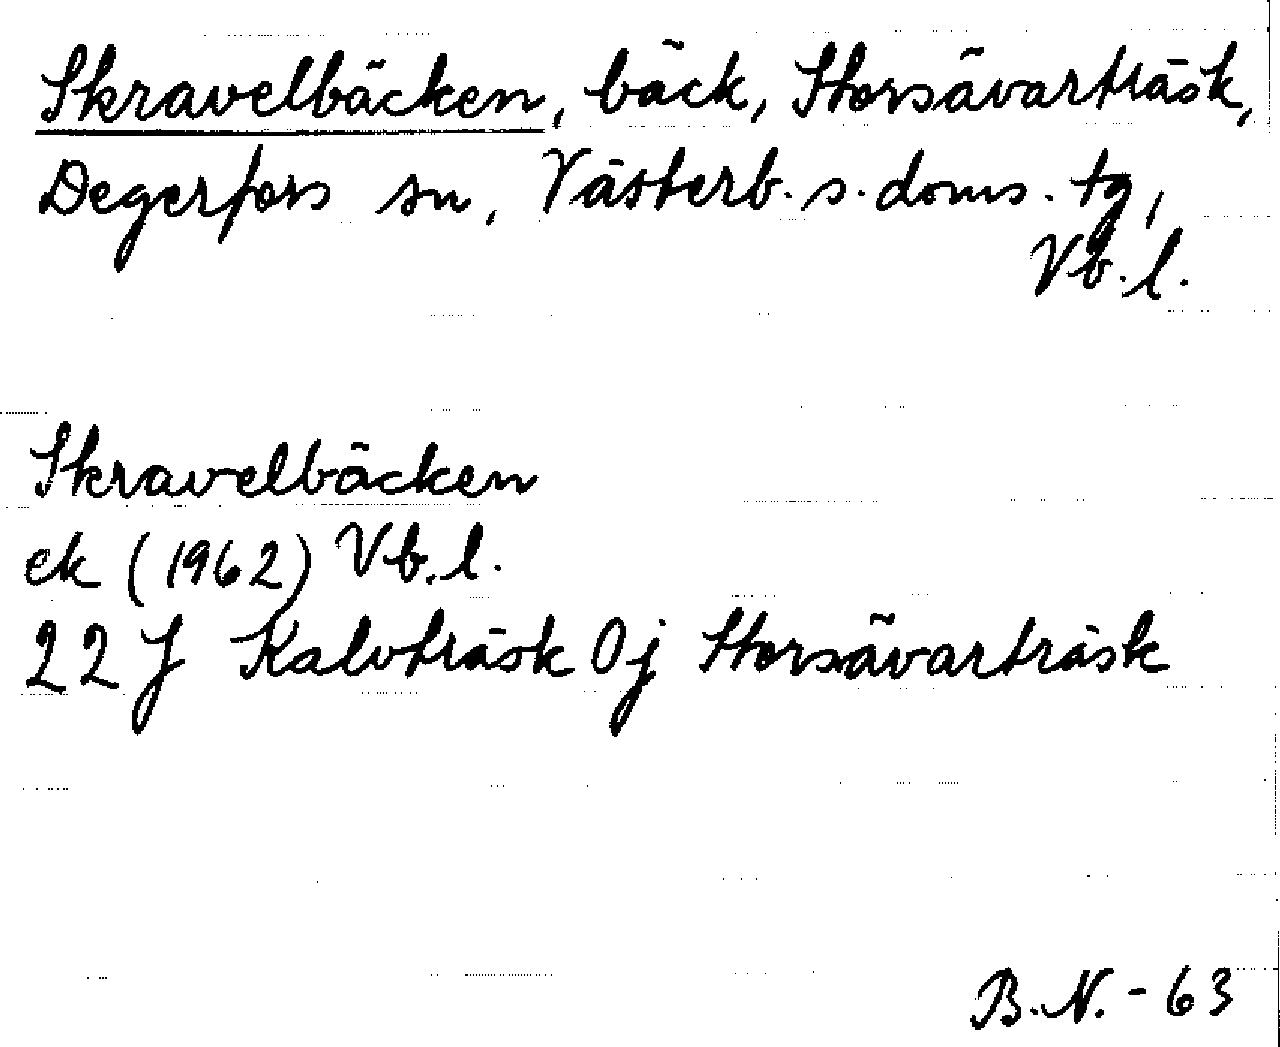 Skravelbäcken, bäck, Storsävarträsk,
Degerfors sn, Västerb. s. doms. tg,
Vb. l.
Skravelbäcken
ek (1962) Vb. l.
22 J Kalvträsk 0j Storsävarträsk
B.N. - 63